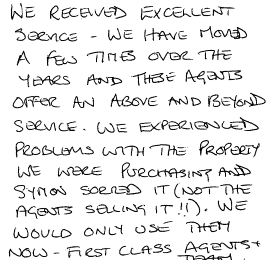 WE RECEIVED EXCELLENT
SERVICE - WE HAVE MOVED
A FEW TIMES OVER THE
YEARS AND THESE AGENTS
OFFER AN ABOVE AND BEYOND
SERVICE. WE EXPERIENCED
PROBLEMS WITH THE PROPERTY
WE WERE PURCHASING AND
SYMON SORRED IT (NOT THE
AGENTS SELLING IT!!). WE
WOULD ONLY USE THEM
NOW - FIRST CLASS AGENTS +
TEAM